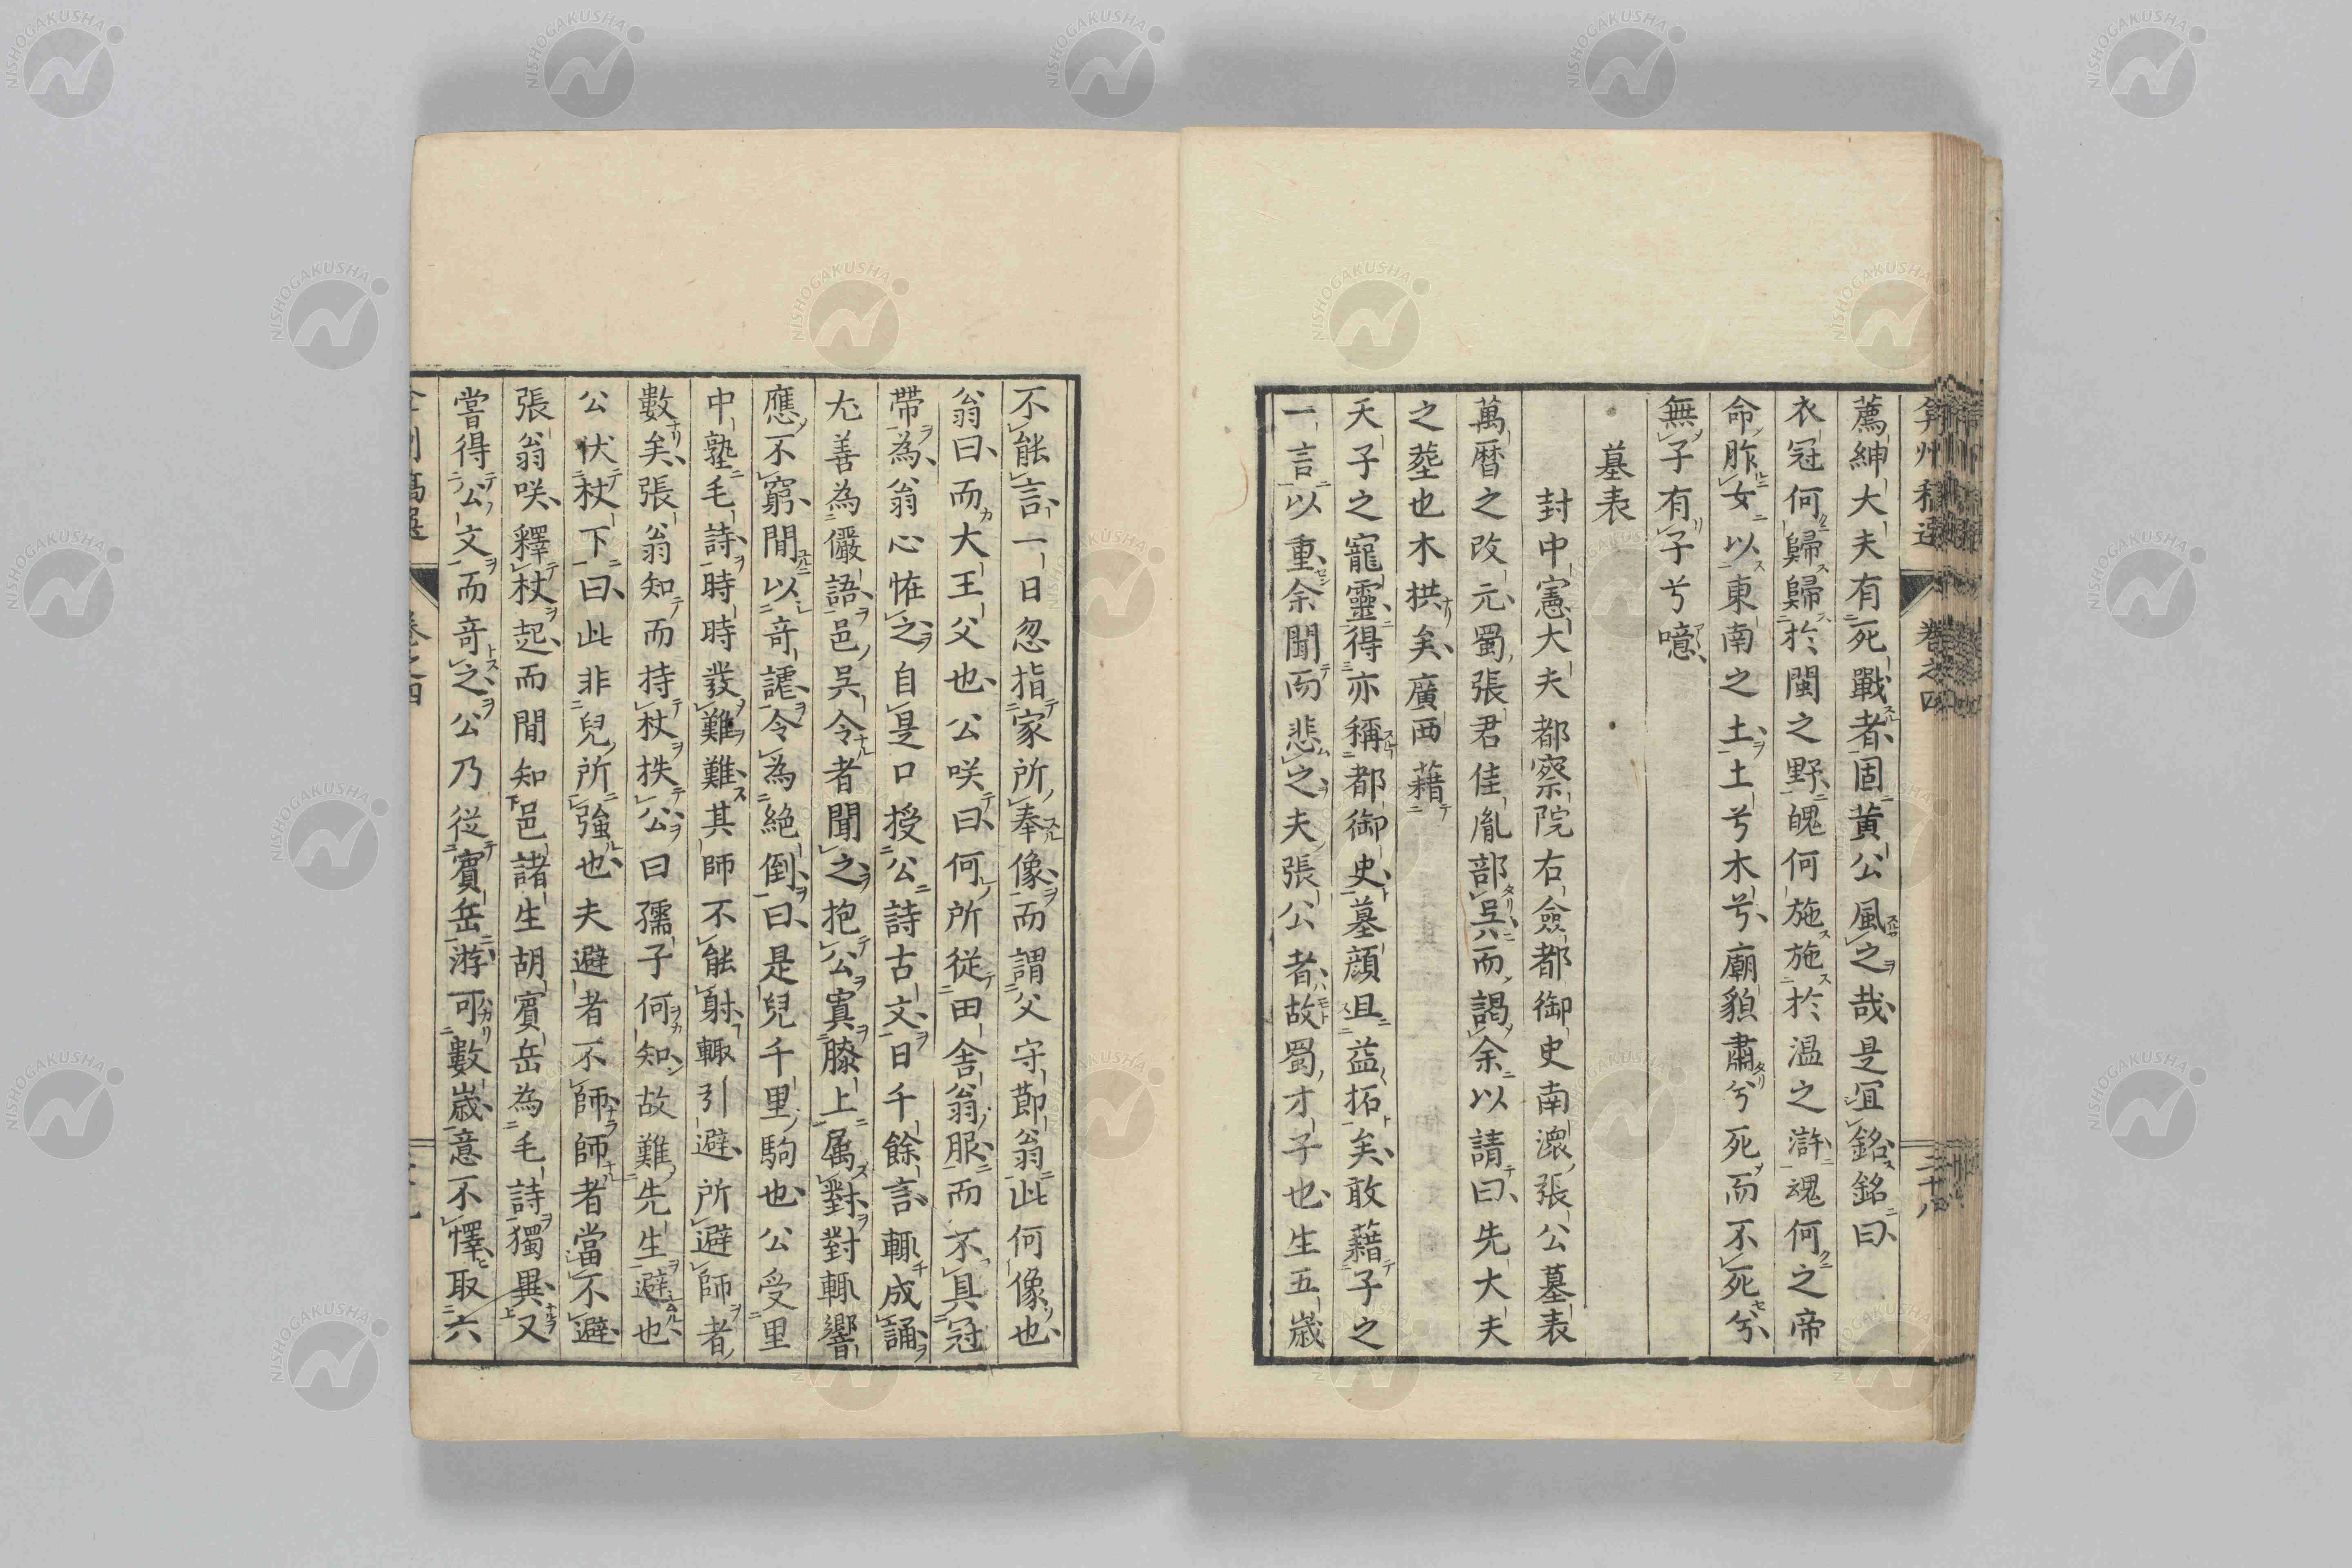 薦紳大夫有死戰者固黃公風之哉是冝銘銘曰
衣冠何歸歸於閩之野魄何施施於温之滸魂何之帝
命胙女以東南之土土兮木兮廟貌肅兮死而不死兮
無子有子兮噫
墓表
封中憲大夫都察院右僉都御史南㵎張公墓表
萬曆之改元蜀張君佳胤部吳而謁余以請曰先大夫
之塟也木拱矣廣西藉
天子之寵靈得亦稱都御史墓顔且益拓矣敢藉子之
一言以重余聞而悲之夫張公者故蜀才子也生五歲
不能言一日忽指家所奉像而謂父守節翁此何像也
翁曰而大王父也公咲曰何所從田舎翁服而不具冠
帶為翁心恠之自是口授公詩古文日千餘言輒成誦
尤善為儷語邑吳令者聞之抱公寘膝上属對對輒響
應不窮間以竒謔令為絶倒曰是兒千里駒也公受里
中塾毛詩時時發難難其師不能射輙引避所避師者
數矣張翁知而持杖抶公曰孺子何知故難先生避也
公伏杖下曰此非兒所強也夫避者不師師者當不避
張翁咲釋杖起而間知邑諸生胡賔岳為毛詩獨異又
嘗得公文而竒之公乃從賔岳游可數歲意不懌取六
卷之四